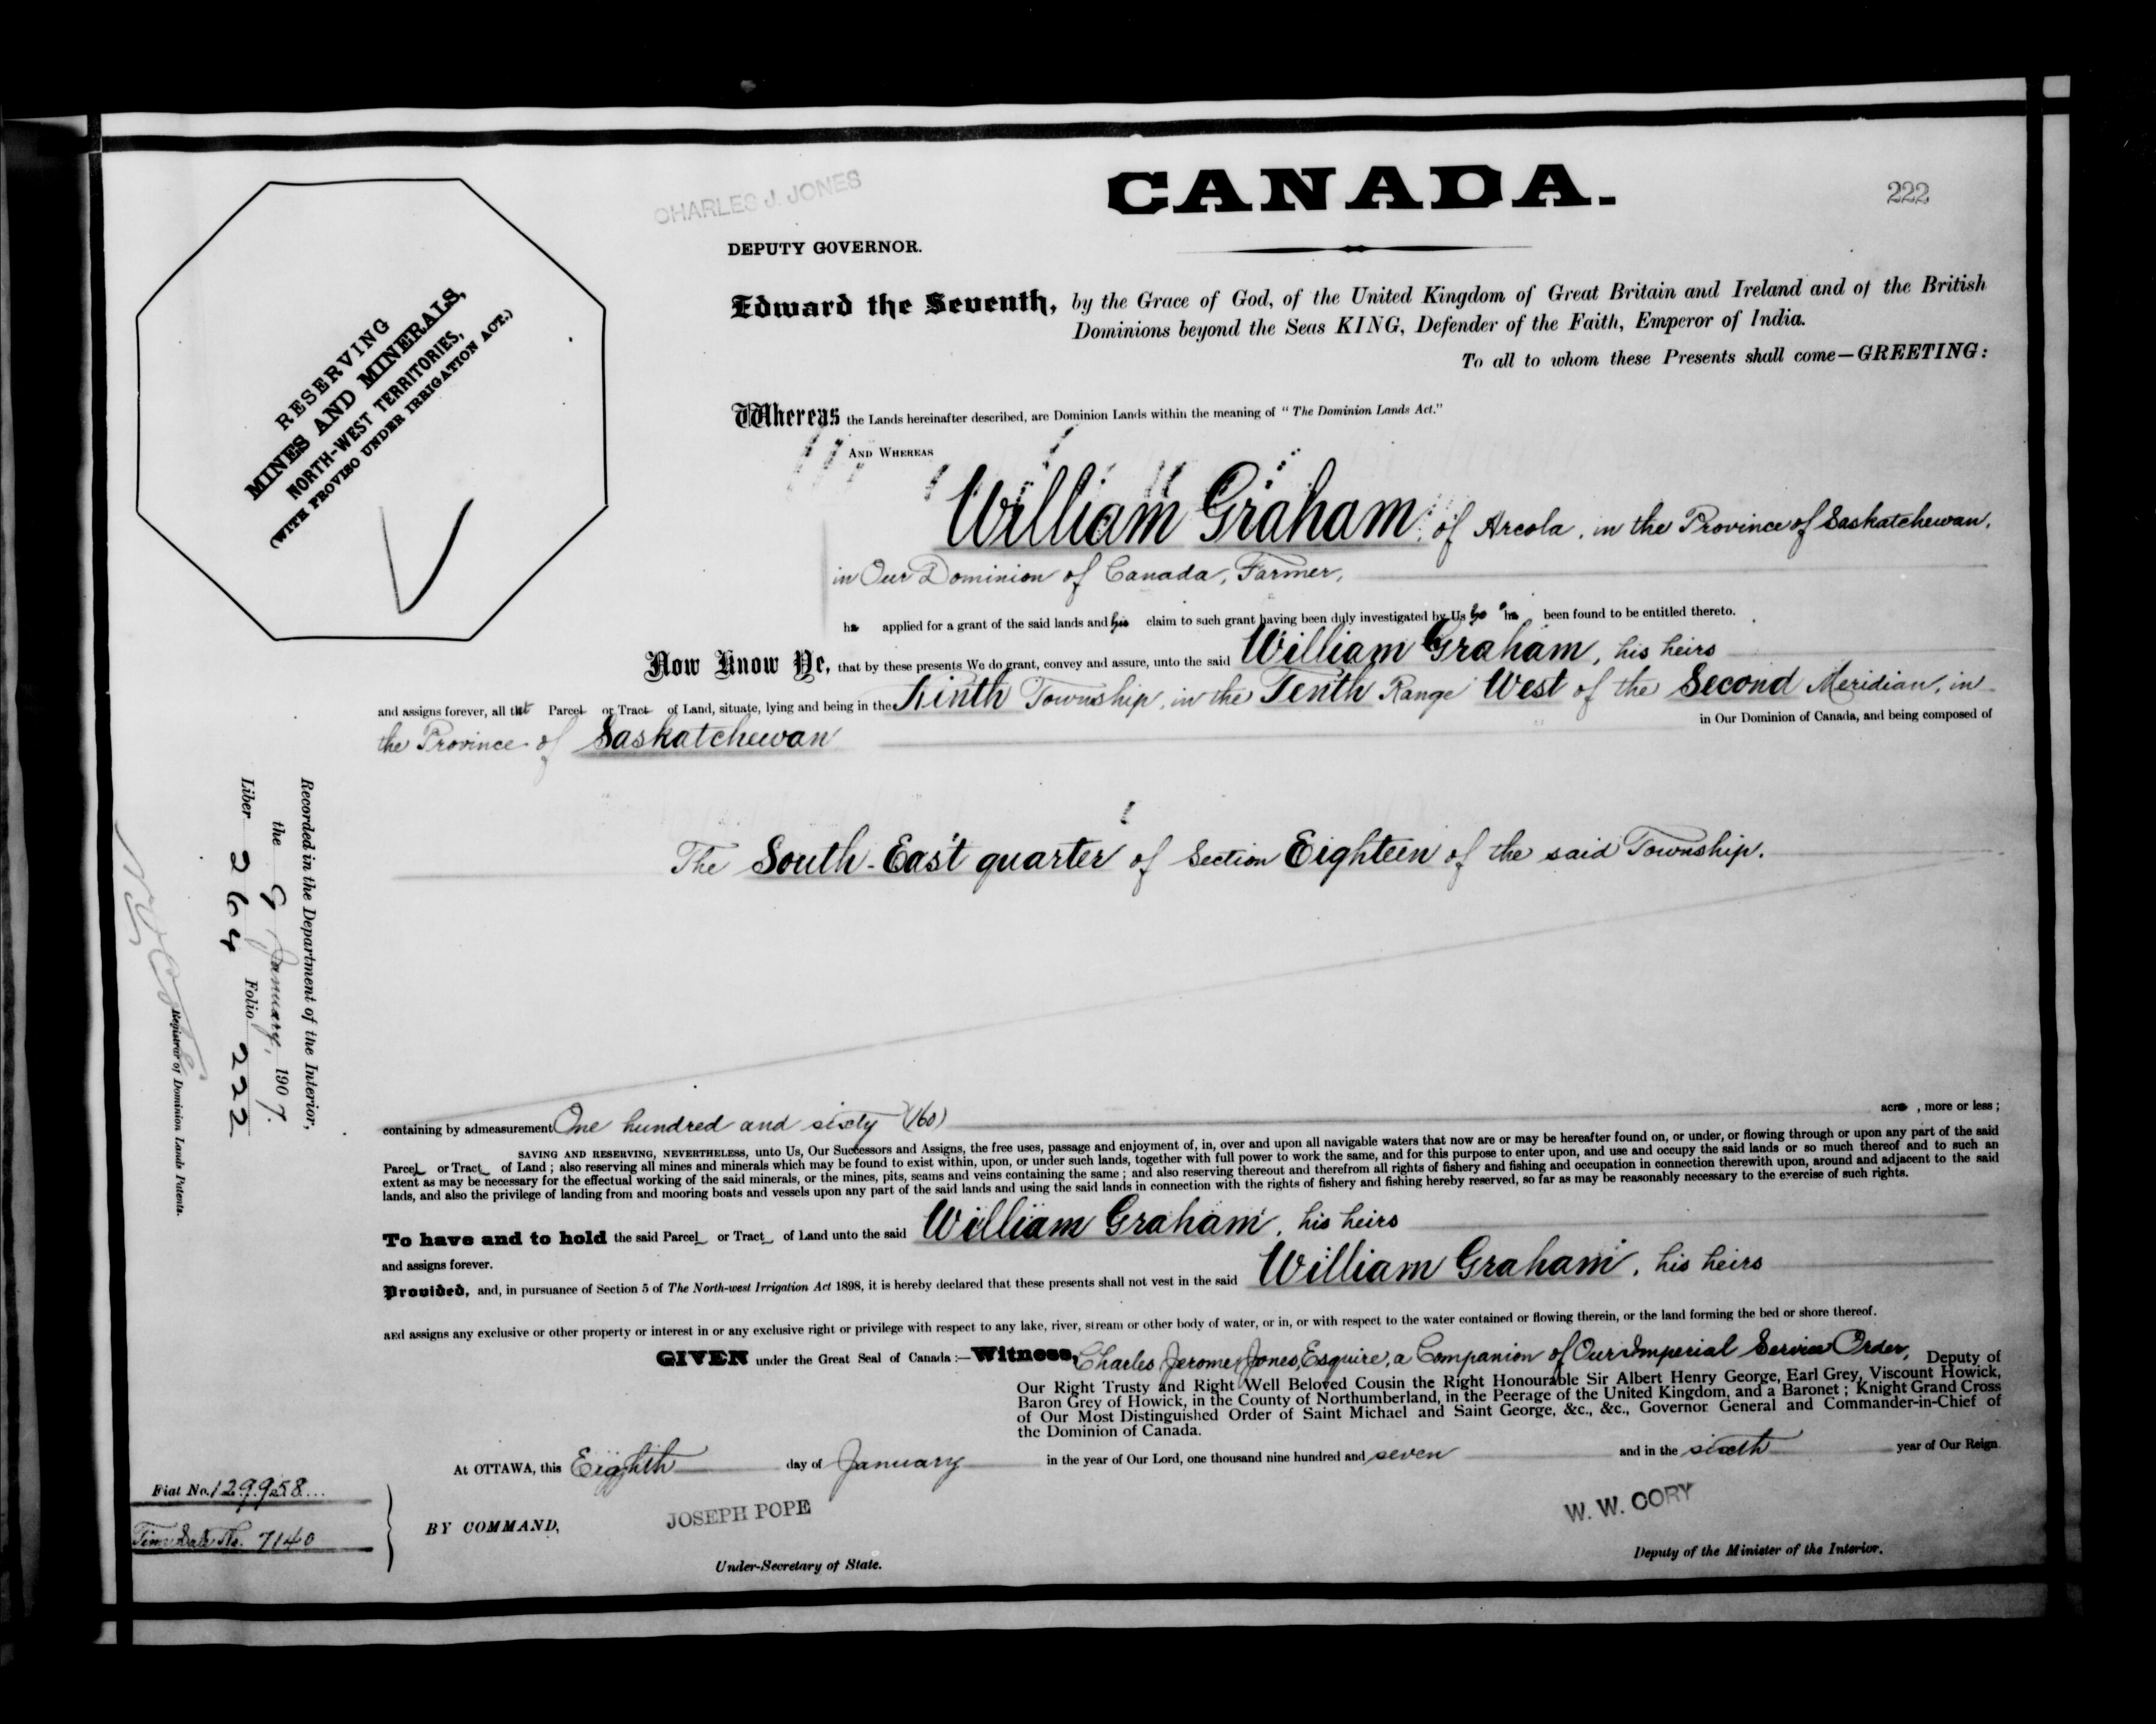 CANADA.
222
CHARLES J. JONES
DEPUTY GOVERNOR.
RESERVING
MINES AND MINERALS,
NORTH-WEST TERRITORIES,
(WITH PROVISO UNDER IRRIGATION ACT.)
Edward the Seventh, by the Grace of God, of the United Kingdom of Great Britain and Ireland and of the British
Dominions beyond the Seas KING, Defender of the Faith, Emperor of India.
To all to whom these Presents shall come—GREETING:
Whereas the Lands hereinafter described, are Dominion Lands within the meaning of "The Dominion Lands Act."
AND WHEREAS
William Graham, of Arcola, in the Province of Saskatchewan,
in Our Dominion of Canada, Farmer,
has applied for a grant of the said lands and his claim to such grant having been duly investigated by Us he has been found to be entitled thereto.
Now Know Ye, that by these presents We do grant, convey and assure, unto the said William Graham, his heirs
and assigns forever, all that Parcel or Tract of Land, situate, lying and being in the Ninth Township, in the Tenth Range West of the Second Meridian, in
the Province of Saskatchewan in Our Dominion of Canada, and being composed of
The South-East quarter of Section Eighteen of the said Township.
containing by admeasurement One hundred and sixty (160) acres, more or less;
SAVING AND RESERVING, NEVERTHELESS, unto Us, Our Successors and Assigns, the free uses, passage and enjoyment of, in, over and upon all navigable waters that now are or may be hereafter found on, or under, or flowing through or upon any part of the said
Parcel or Tract of Land; also reserving all mines and minerals which may be found to exist within, upon, or under such lands, together with full power to work the same, and for this purpose to enter upon, and use and occupy the said lands or so much thereof and to such an
extent as may be necessary for the effectual working of the said minerals, or the mines, pits, seams and veins containing the same; and also reserving thereout and therefrom all rights of fishery and fishing and occupation in connection therewith upon, around and adjacent to the said
lands, and also the privilege of landing from and mooring boats and vessels upon any part of the said lands and using the said lands in connection with the rights of fishery and fishing hereby reserved, so far as may be reasonably necessary to the exercise of such rights.
To have and to hold the said Parcel or Tract of Land unto the said William Graham, his heirs
and assigns forever.
Provided, and, in pursuance of Section 5 of The North-west Irrigation Act 1898, it is hereby declared that these presents shall not vest in the said William Graham, his heirs
and assigns any exclusive or other property or interest in or any exclusive right or privilege with respect to any lake, river, stream or other body of water, or in, or with respect to the water contained or flowing therein, or the land forming the bed or shore thereof.
GIVEN under the Great Seal of Canada:—Witness, Charles Jerome Jones, Esquire, a Companion of Our Imperial Service Order, Deputy of
Our Right Trusty and Right Well Beloved Cousin the Right Honourable Sir Albert Henry George, Earl Grey, Viscount Howick,
Baron Grey of Howick, in the County of Northumberland, in the Peerage of the United Kingdom, and a Baronet; Knight Grand Cross
of Our Most Distinguished Order of Saint Michael and Saint George, &c., &c., Governor General and Commander-in-Chief of
the Dominion of Canada.
At OTTAWA, this Eighth day of January in the year of Our Lord, one thousand nine hundred and seven and in the sixth year of Our Reign
BY COMMAND,
JOSEPH POPE
Under-Secretary of State.
W. W. CORY
Deputy of the Minister of the Interior.
Fiat No. 129958
No. 7140
Recorded in the Department of the Interior,
the 9 January, 1907.
Liber 264 Folio 222
Registrar of Dominion Lands Patents.